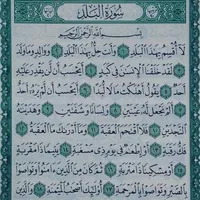 سُورَةُ الْبَلَدِ
بِسْمِ اللَّهِ الرَّحْمَٰنِ الرَّحِيمِ
لَا أُقْسِمُ بِهَٰذَا الْبَلَدِ ١ وَأَنتَ حِلٌّ بِهَٰذَا الْبَلَدِ ٢ وَوَالِدٍ وَمَا وَلَدَ
٣ لَقَدْ خَلَقْنَا الْإِنسَانَ فِي كَبَدٍ ٤ أَيَحْسَبُ أَن لَّن يَقْدِرَ عَلَيْهِ
أَحَدٌ ٥ يَقُولُ أَهْلَكْتُ مَالًا لُّبَدًا ٦ أَيَحْسَبُ أَن لَّمْ يَرَهُ أَحَدٌ
٧ أَلَمْ نَجْعَل لَّهُ عَيْنَيْنِ ٨ وَلِسَانًا وَشَفَتَيْنِ ٩ وَهَدَيْنَاهُ
النَّجْدَيْنِ ١٠ فَلَا اقْتَحَمَ الْعَقَبَةَ ١١ وَمَا أَدْرَاكَ مَا الْعَقَبَةُ ١٢
فَكُّ رَقَبَةٍ ١٣ أَوْ إِطْعَامٌ فِي يَوْمٍ ذِي مَسْغَبَةٍ ١٤ يَتِيمًا ذَا مَقْرَبَةٍ
١٥ أَوْ مِسْكِينًا ذَا مَتْرَبَةٍ ١٦ ثُمَّ كَانَ مِنَ الَّذِينَ آمَنُوا وَتَوَاصَوْا
بِالصَّبْرِ وَتَوَاصَوْا بِالْمَرْحَمَةِ ١٧ أُولَٰئِكَ أَصْحَابُ الْمَيْمَنَةِ ١٨ وَالَّذِينَ